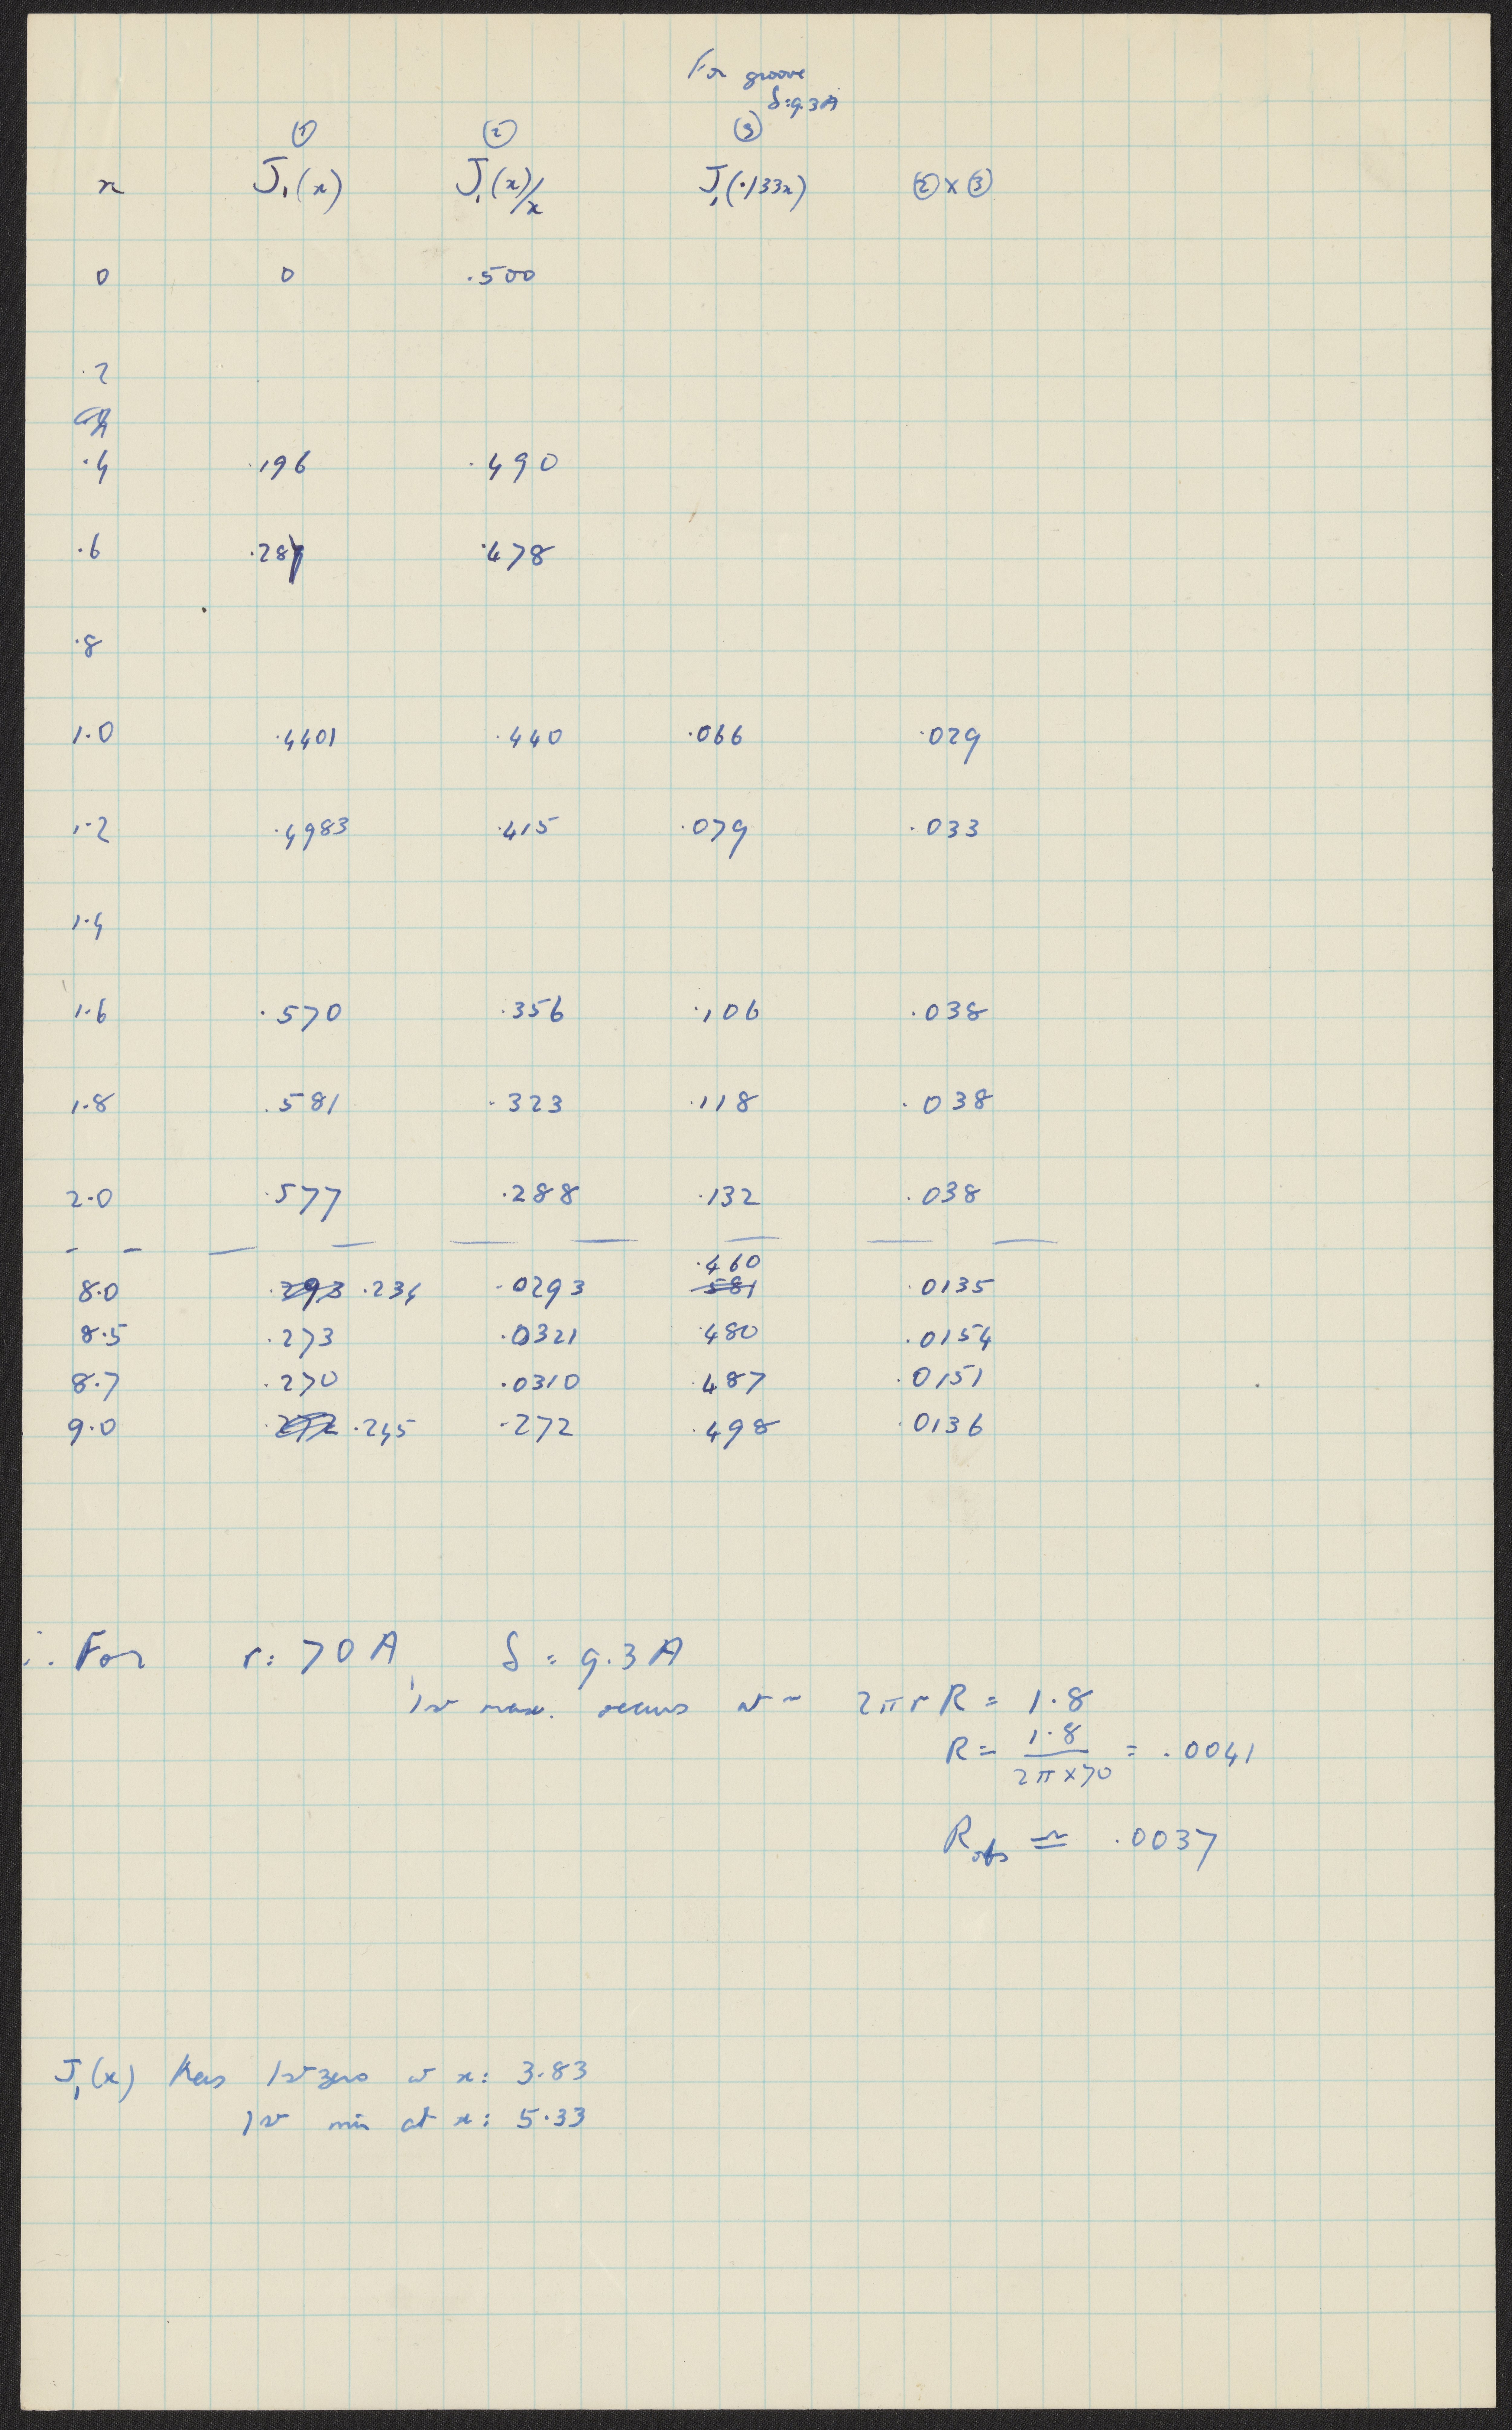 For groove
δ=9.3A
① ② ③
x J₁(x) J₁(x)/x J₁(·133x) ②x③
0 0 .500
.2
.4 .196 .490
.6 .287 .478
.8
1.0 .4401 .440 .066 .029
1.2 .4983 .415 .079 .033
1.4
1.6 .570 .356 .106 .038
1.8 .581 .323 .118 .038
2.0 .577 .288 .132 .038
.460
8.0 .293 .234 .0293 .581 .0135
8.5 .273 .0321 .480 .0154
8.7 .270 .0310 .487 .0151
9.0 .245 .272 .498 .0136
∴ For r = 70A δ = 9.3A
1st max. occurs at ~ 2πrR = 1.8
R = 1.8 / 2π x 70 = .0041
R obs ≃ .0037
J₁(x) has 1st zero at x = 3.83
1st min at x = 5.33